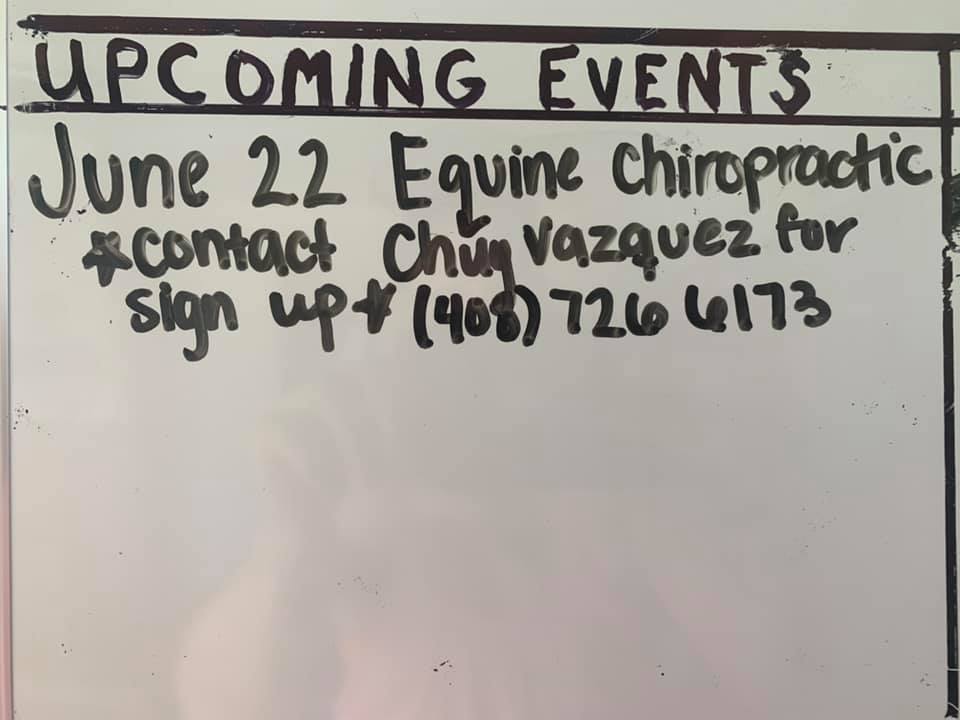 UPCOMING EVENTS
June 22 Equine Chiropractic
*contact Chuy Vazquez for
sign up* (408) 726 6173